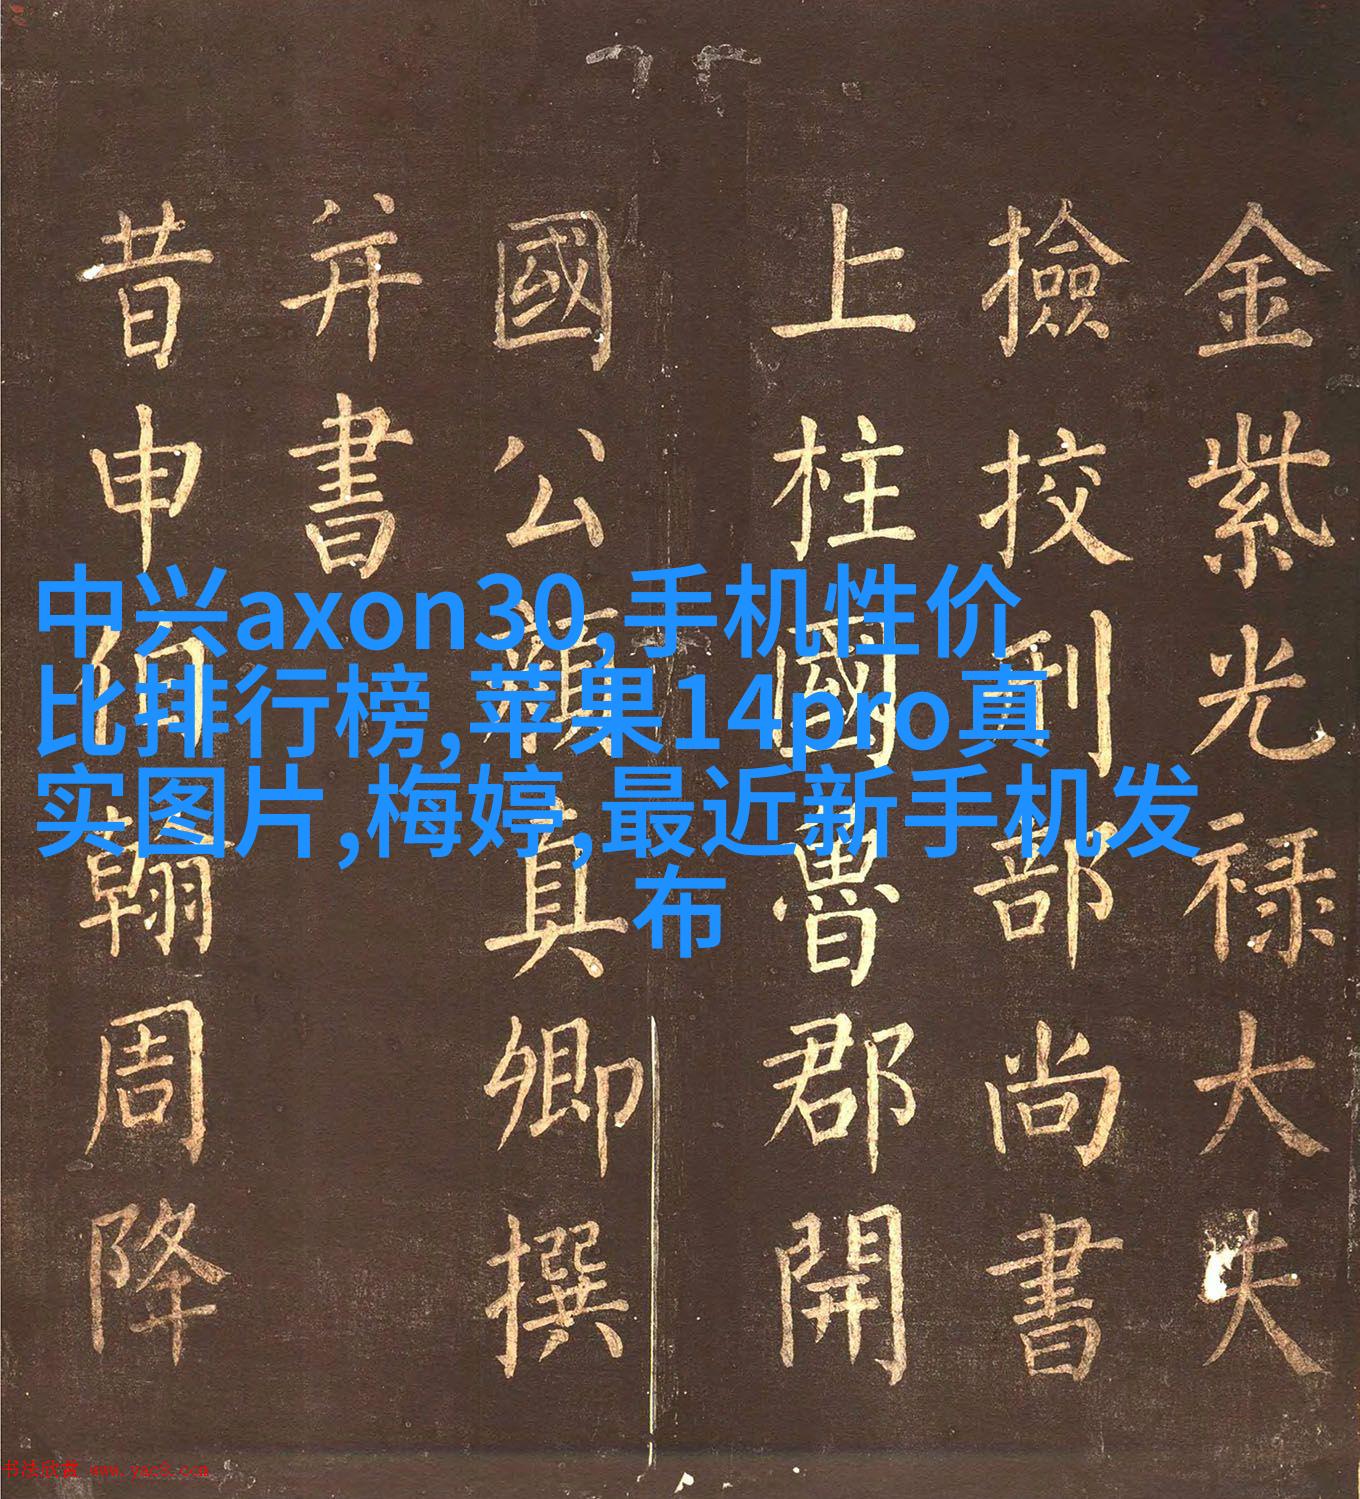 金紫光禄大夫
撿挍刑部尚書
上柱國魯郡開
國公顔真卿撰
并書
昔申伯翰周降
中兴axon30,手机性价
比排行榜,苹果14pro真
实图片,梅婷,最近新手机发
布
书法欣赏 www.yac8.com